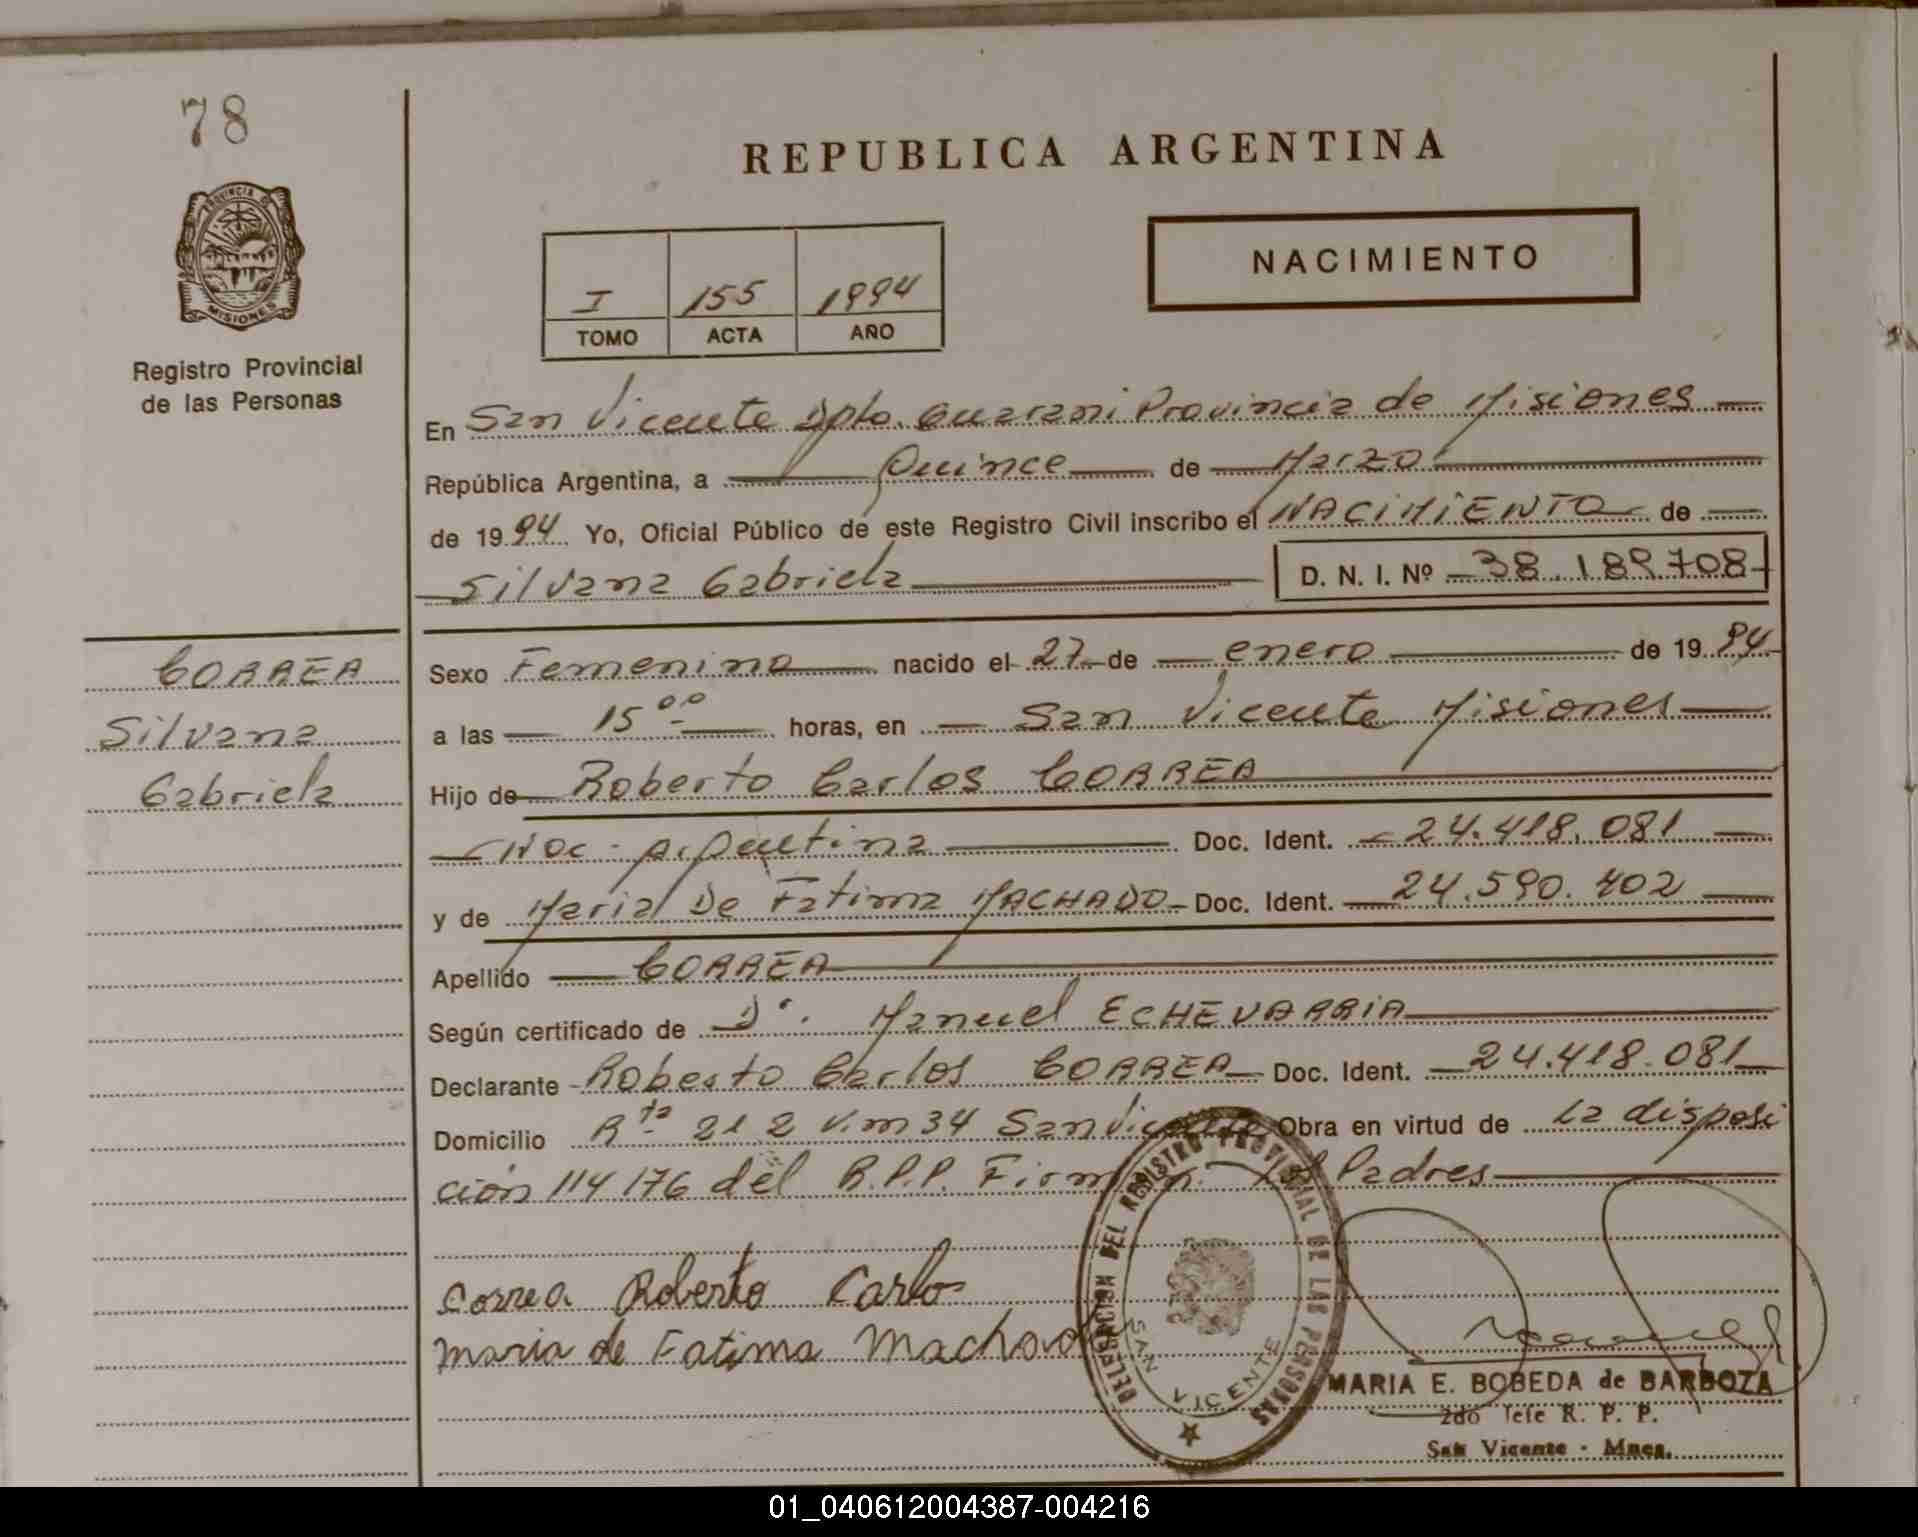 78
REPUBLICA ARGENTINA
PROVINCIA DE
MISIONES
Registro Provincial
de las Personas
I 155 1994
TOMO ACTA AÑO
NACIMIENTO
En San Vicente Dpto. Guarani Provincia de Misiones
República Argentina, a Quince de Marzo
de 1994 Yo, Oficial Público de este Registro Civil inscribo el NACIMIENTO de
Silvana Gabriela D. N. I. Nº 38.189.708
CORREA
Silvana
Gabriela
Sexo Femenino nacido el 27 de enero de 1994
a las 15 00 horas, en San Vicente Misiones
Hijo de Roberto Carlos CORREA
Nac. Argentina Doc. Ident. 24.418.081
y de Maria De Fatima MACHADO Doc. Ident. 24.590.402
Apellido CORREA
Según certificado de Dr. Manuel ECHEVARRIA
Declarante Roberto Carlos CORREA Doc. Ident. 24.418.081
Domicilio Rta 212 Km 34 San Vicente Obra en virtud de la disposi
ción 114176 del R.P.P. Firman Los Padres
Correa Roberto Carlos
Maria de Fatima Machado
DELEGACION DEL REGISTRO PROVINCIAL DE LAS PERSONAS
SAN VICENTE
MARIA E. BOBEDA de BARBOZA
2do Jefe R. P. P.
San Vicente - Mnes.
01_040612004387-004216